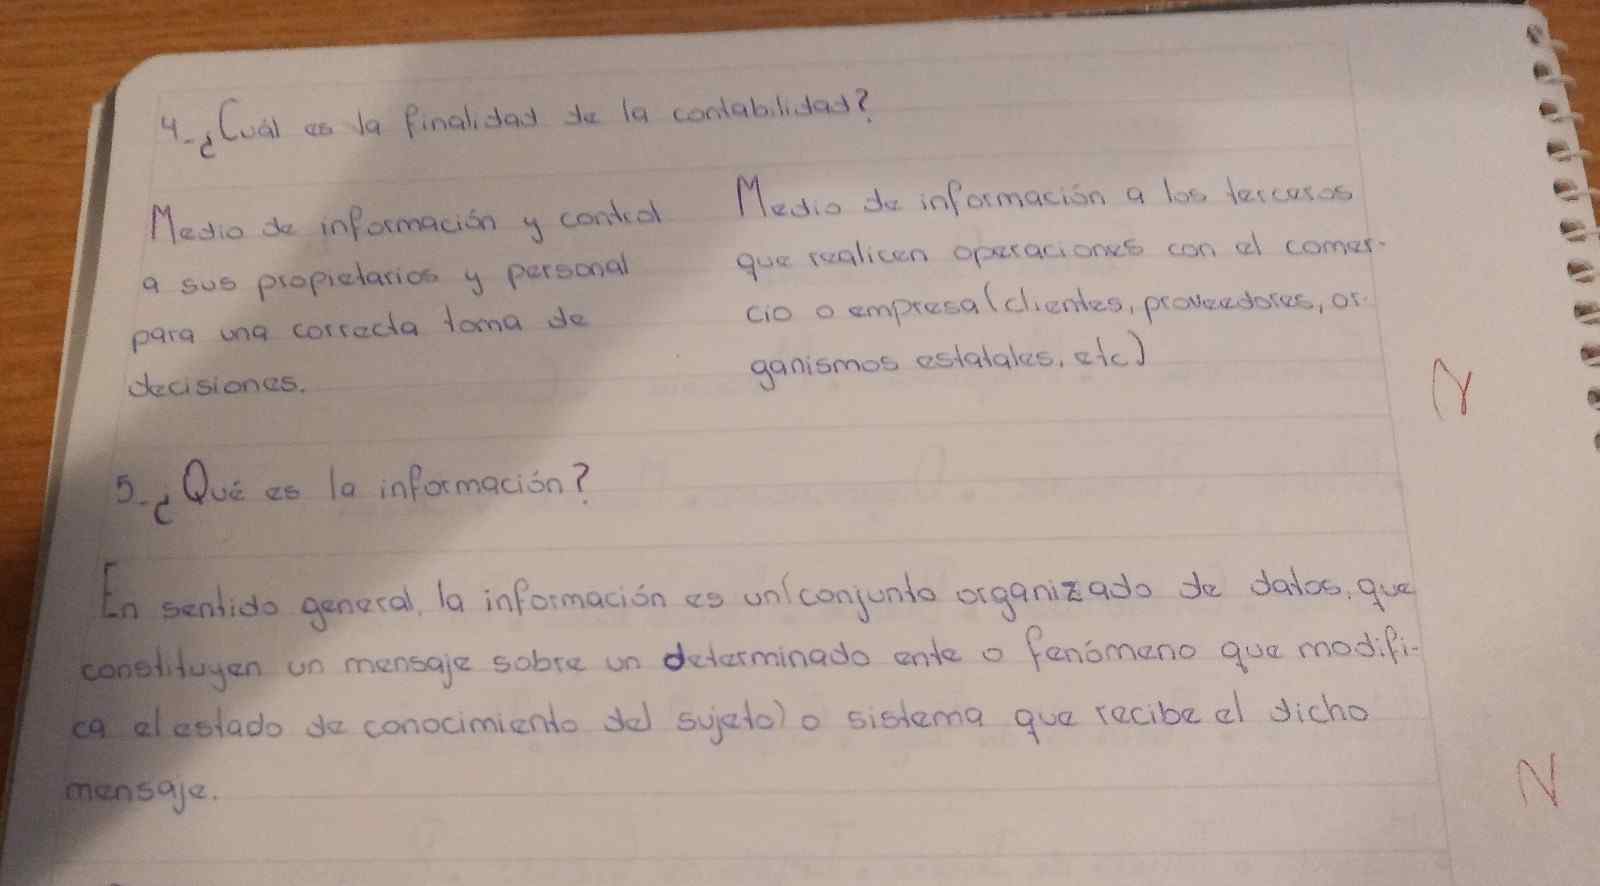 4-¿Cuál es la finalidad de la contabilidad?
Medio de información y control
a sus propietarios y personal
para una correcta toma de
decisiones.
Medio de información a los terceros
que realicen operaciones con el comer-
cio o empresa (clientes, proveedores, or-
ganismos estatales, etc)
5-¿Qué es la información?
En sentido general, la información es un (conjunto organizado de datos, que
constituyen un mensaje sobre un determinado ente o fenómeno que modifi-
ca el estado de conocimiento del sujeto) o sistema que recibe el dicho
mensaje.
N